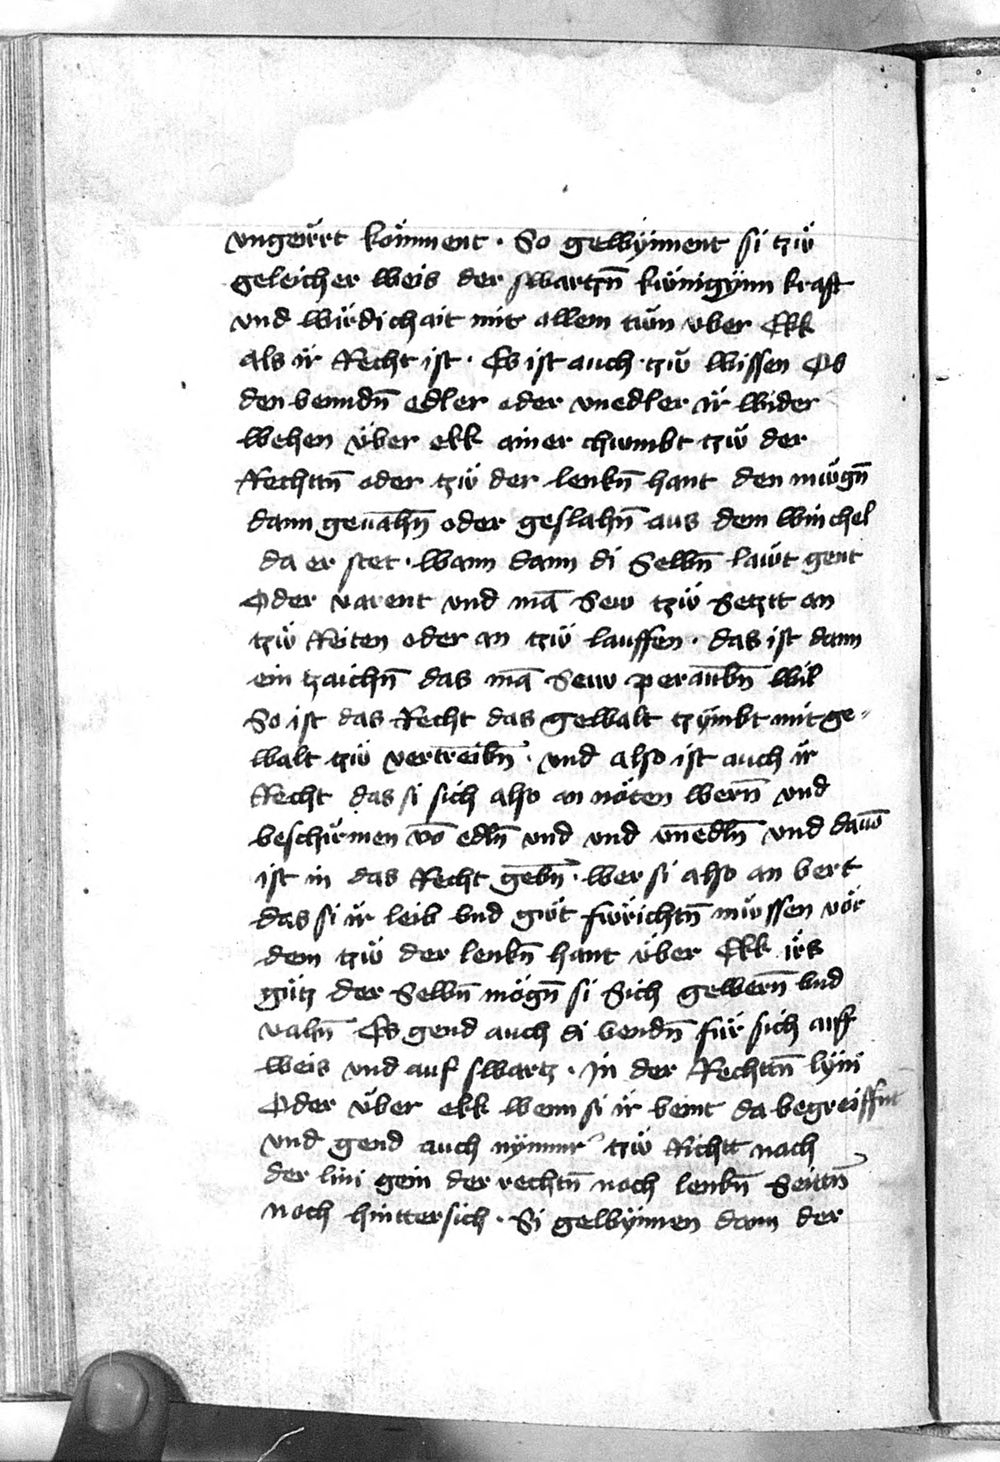 vngeiͤrrt koͤmment · So gewÿnnent si tzwͤ
geleicher weis der swartzn̄ kwͤnigÿnn kraft
vnd wirdichait mit allem twͤn vber Ekk
als ir Recht ist · Es ist auch tzwͤ wissen Ob
den venndn̄ edler oder vnedler ir wider
wehen vͤber ekk ainer chwmbt tzwͤ der
Rechttn̄ oder tzwͤ der lenkn̄ hant den mwͤgn̄
dann geuahn̄ oder geslahn̄ aus dem winchel
da er stet · wann dann di Selbn̄ lawͤt gent
Oder varent vnd mā Sew tzwͤ Setztt an
tzwͤ Reiten oder an tzwͤ lauffen · das ist dann
ein tzaichn̄ das mā Sew peraubn̄ wil
So ist das Recht das gewalt tzÿmbt mit ge„
walt tzwͤ vertreibn̄ · vnd also ist auch ir
Recht das si sich also an noͤten wern̄ vnd
beschirmen vō edln̄ vnd vnd vnedln̄ vnd dauō
ist in das Recht gebn̄ · wer si also an vert
das si ir leib vnd gwͤt fwͤrichtn̄ mwͤssen voͤr
dem tzwͤ der lenkn̄ hant vͤber Ekk irs
guͤtz der Selbn̄ moͤgn̄ si Sich gewern̄ vnd
vahn̄ Es gend auch di vendn̄ fuͤr sich auff
weis vnd auf swartz · in der Rechttn̄ lÿni
Oder vͤber ekk wenn si ir veint da begreiffnt
vnd gend auch nÿmmr tzwͤ Richtt nach
der lini gein der rechtn̄ noch lenkn̄ Seittn̄
noch hinttersich · Si gewÿnnen dann der